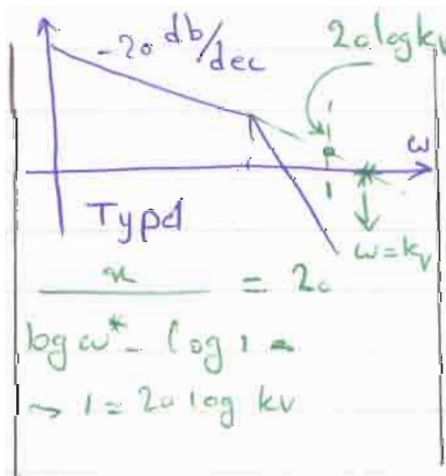 -20 db/dec
20 log kv
ω
1
Type1
ω=kv
x / (log ω* - log 1) = 20
→ 1 = 20 log kv